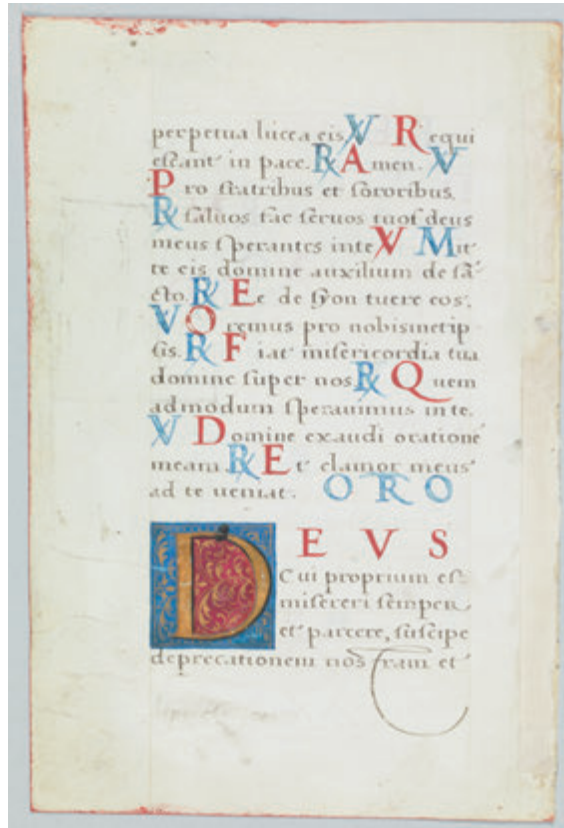 perpetua lucea eis. ℣ Requi
escant in pace. ℟ Amen. ℣
Pro fratribus et sororibus.
℟ saluos fac seruos tuos deus
meus sperantes in te ℣ Mit
te eis domine auxilium de sā
cto. ℟ Et de syon tuere eos.
℣ Oremus pro nobismetip
sis. ℟ Fiat misericordia tua
domine super nos ℟ Quem
admodum sperauimus in te.
℣ Domine exaudi orationē
meam ℟ Et clamor meus
ad te ueniat. ORO
DEVS
Cui proprium est
misereri semper
et parcere, suscipe
deprecationem nostram et